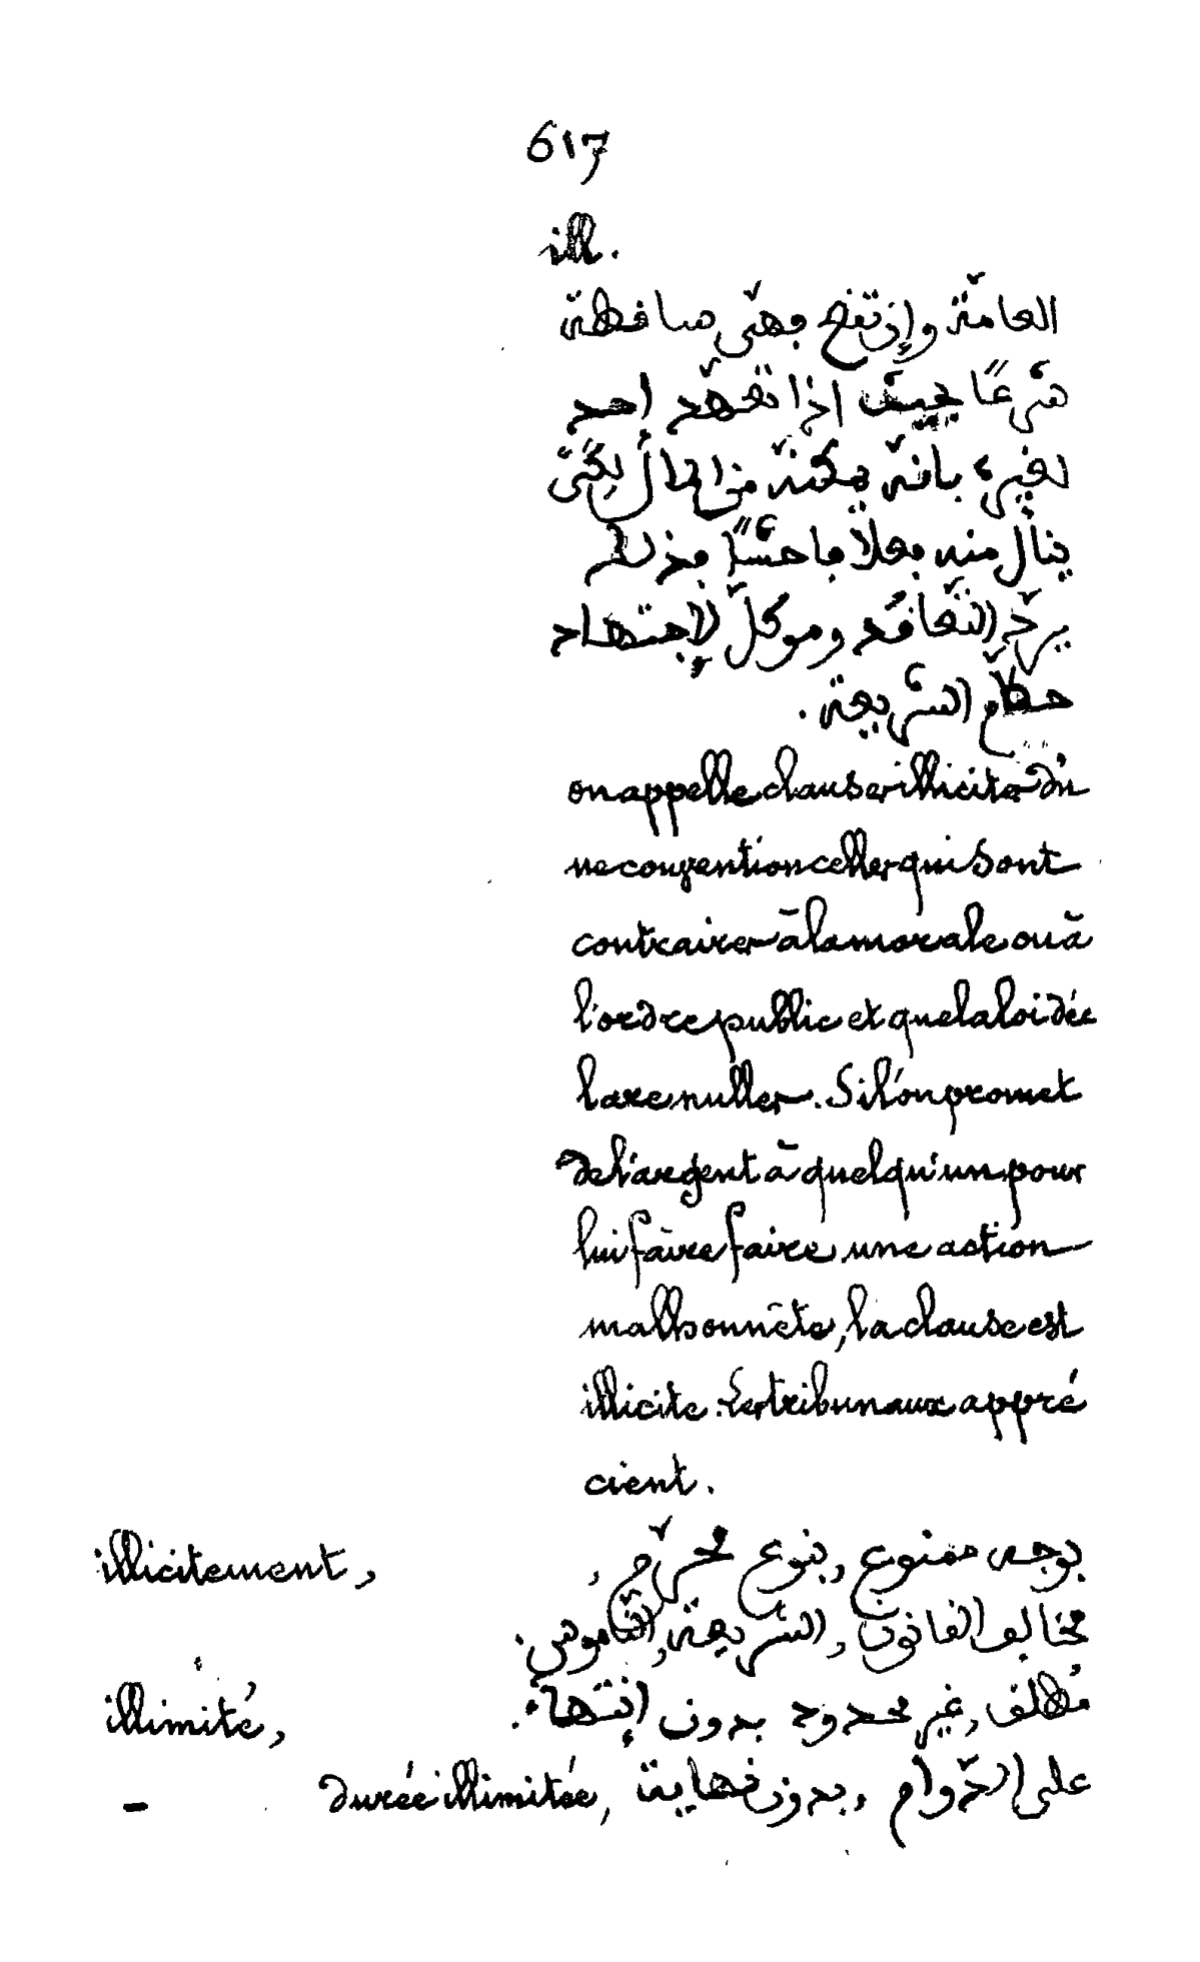 617
ill.
العامّة وإن تقع فهي ساقطة
شرعًا بحيث اذا تعهّد إحد
لغيره بانّه يمكنه من المال لِكَيْ
ينال منه فعلاً فاحشًا فذلك
يردّ التّعاقد وموكلّ لإجتهاد
حكّام الشريعة.
on appelle clauses illicites d'u
ne convention celles qui sont
contraires à la morale ou à
l'ordre public et que la loi déc
lare nulles. Si l'on promet
de l'argent à quelqu'un pour
lui faire faire une action
malhonnête, la clause est
illicite. Les tribunaux appré
cient.
illicitement, بوجه ممنوع, بنوع محرّم,
مخالف القانون, الشريعة, النّاموس.
illimité, مُطلق, غير محدود بدون إنتهاء.
– durée illimitée, على الدّوام, بدون نهاية